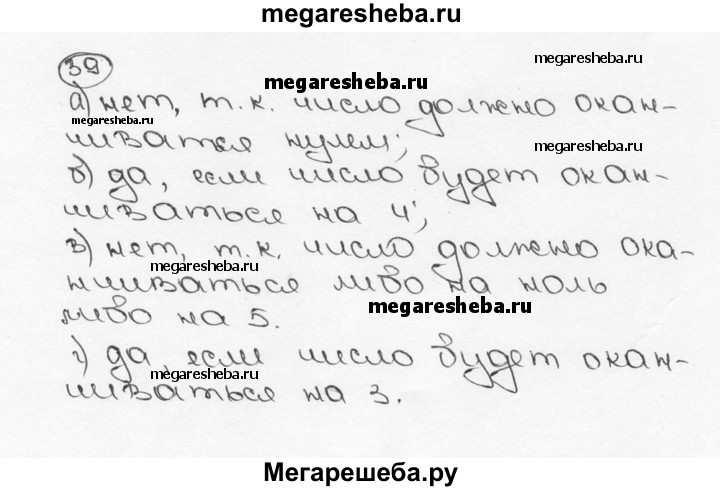 megaresheba.ru
39
megaresheba.ru
megaresheba.ru
а) нет, т.к. число должно окан-
megaresheba.ru
чиваться нулем;
megaresheba.ru
б) да, если число будет окан-
чиваться на 4;
в) нет, т.к. число должно ока-
megaresheba.ru
нчиваться либо на ноль
megaresheba.ru
либо на 5.
г) да если число будет окан-
megaresheba.ru
чиваться на 3.
Мегарешеба.ру